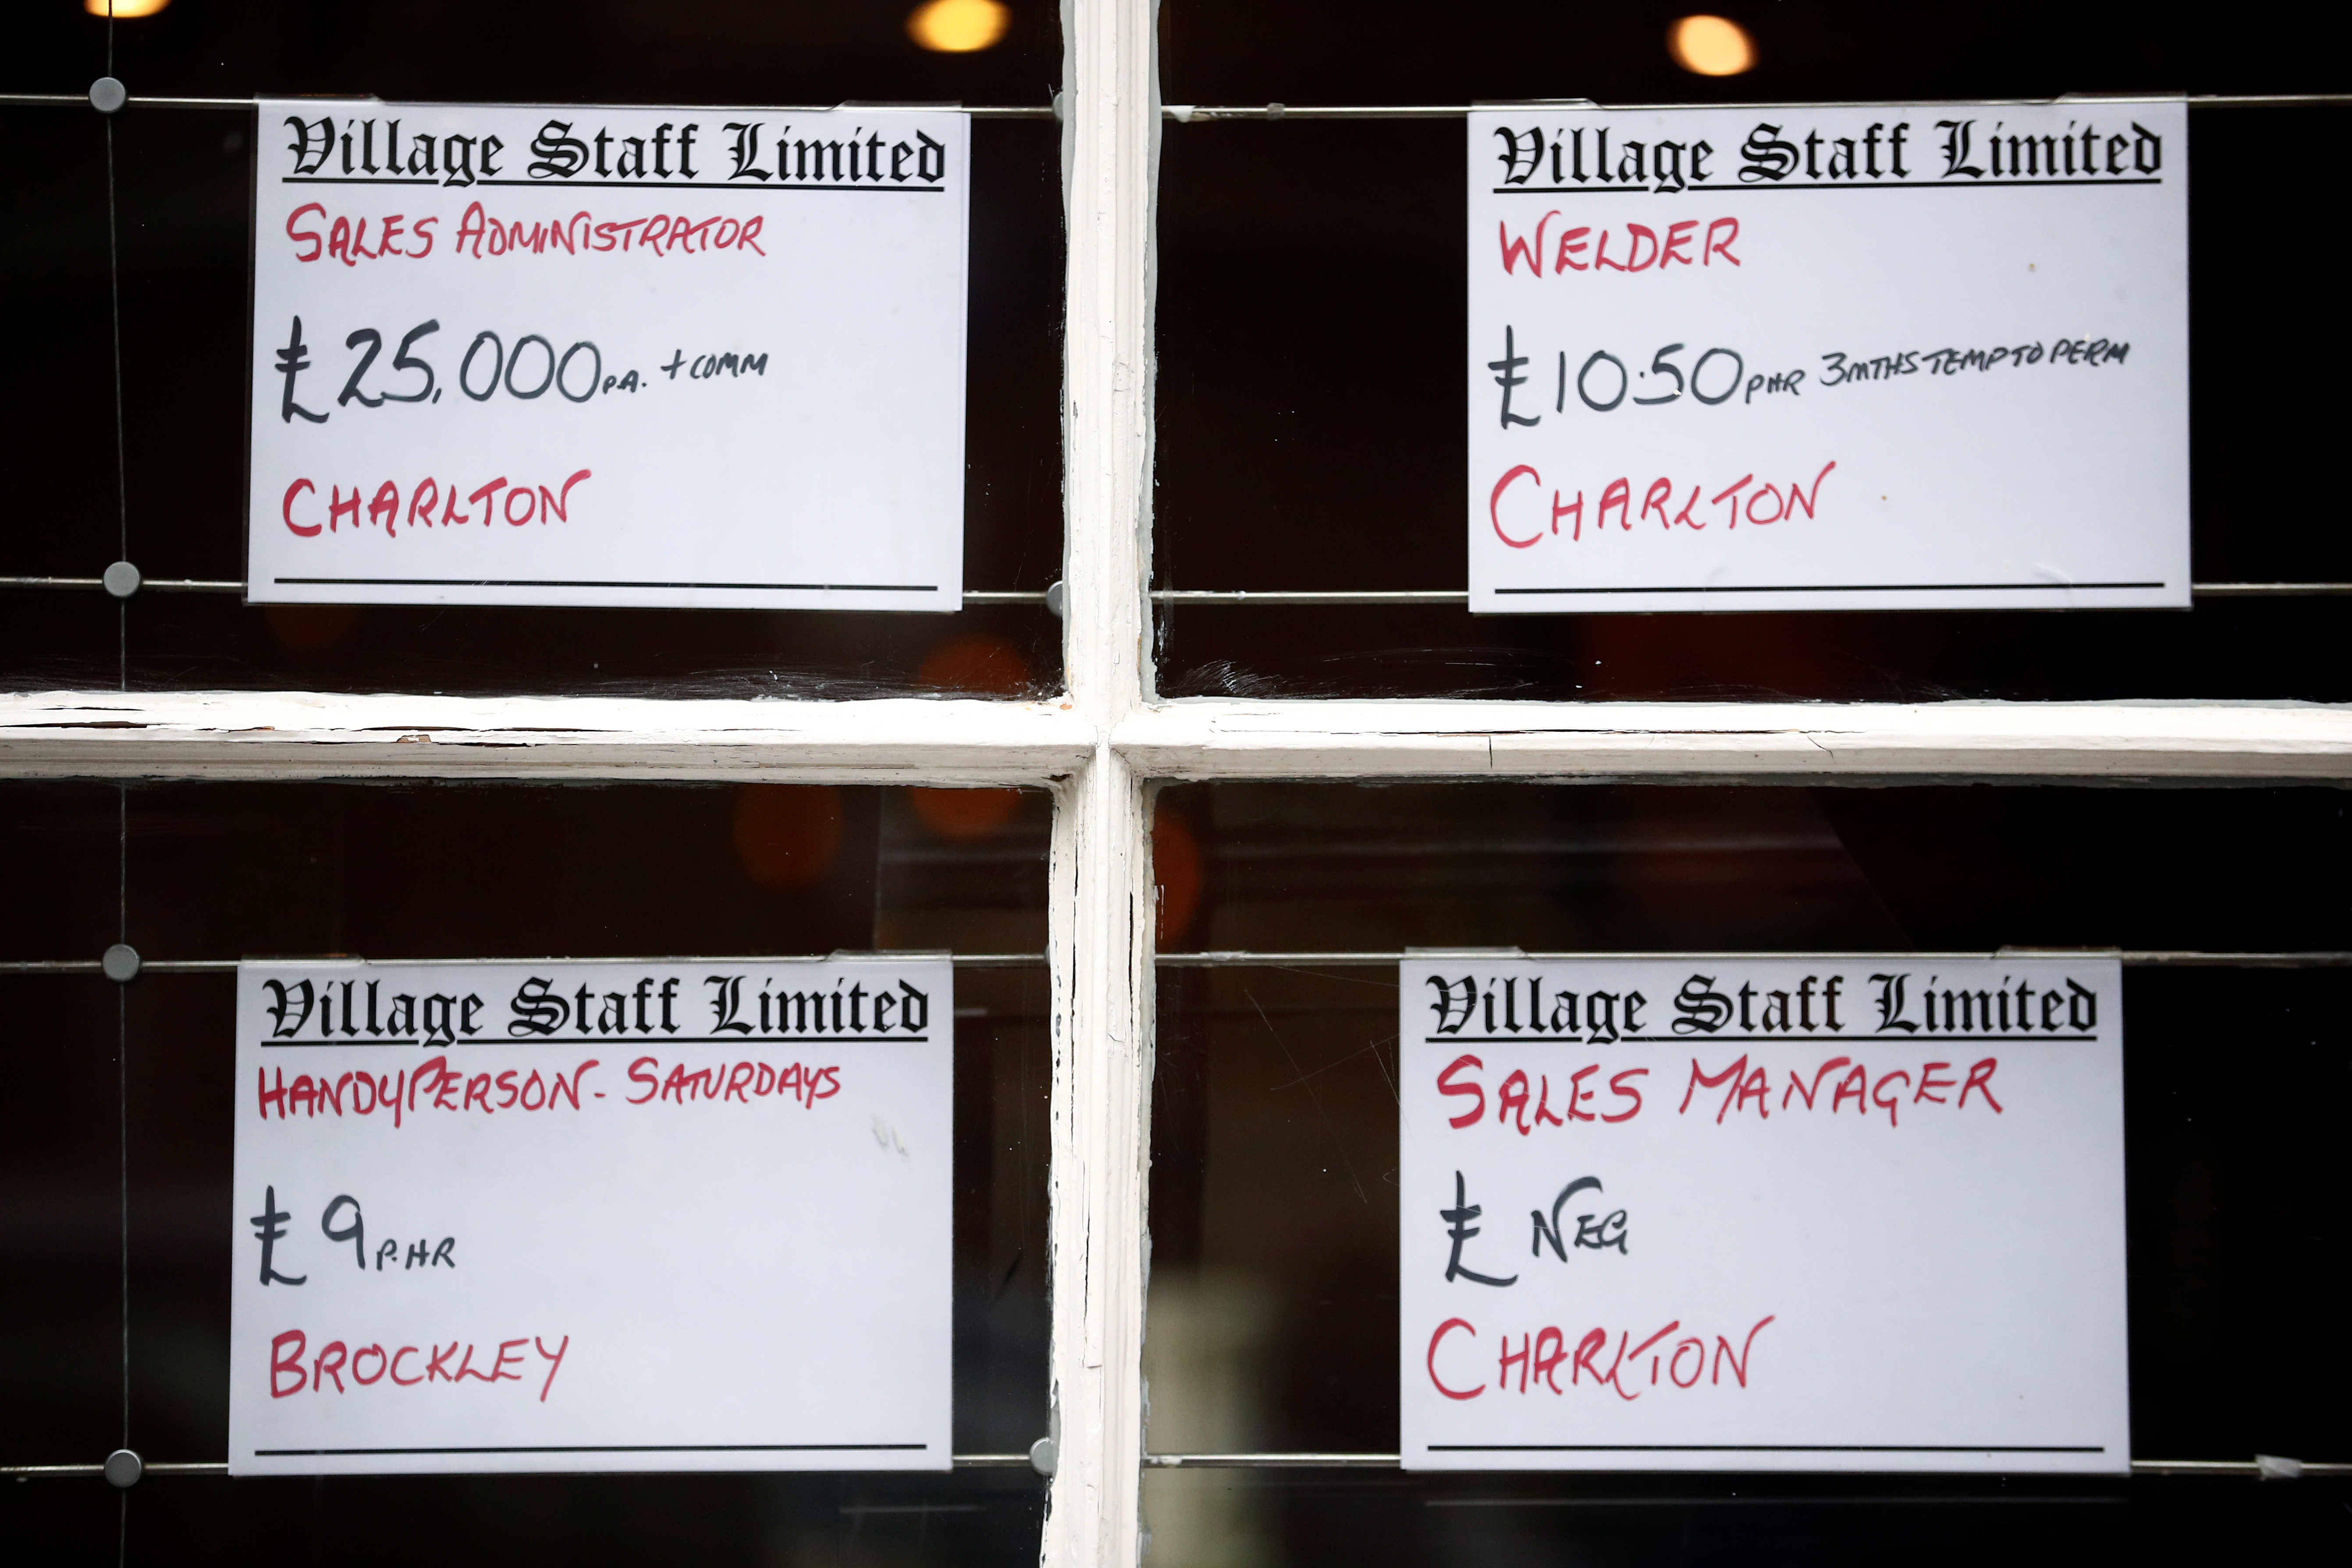 Village Staff Limited
SALES ADMINISTRATOR
£25,000 P.A. + COMM
CHARLTON
Village Staff Limited
WELDER
£10.50 PHR 3MTHS TEMP TO PERM
CHARLTON
Village Staff Limited
HANDYPERSON - SATURDAYS
£9 P.HR
BROCKLEY
Village Staff Limited
SALES MANAGER
£ NEG
CHARLTON